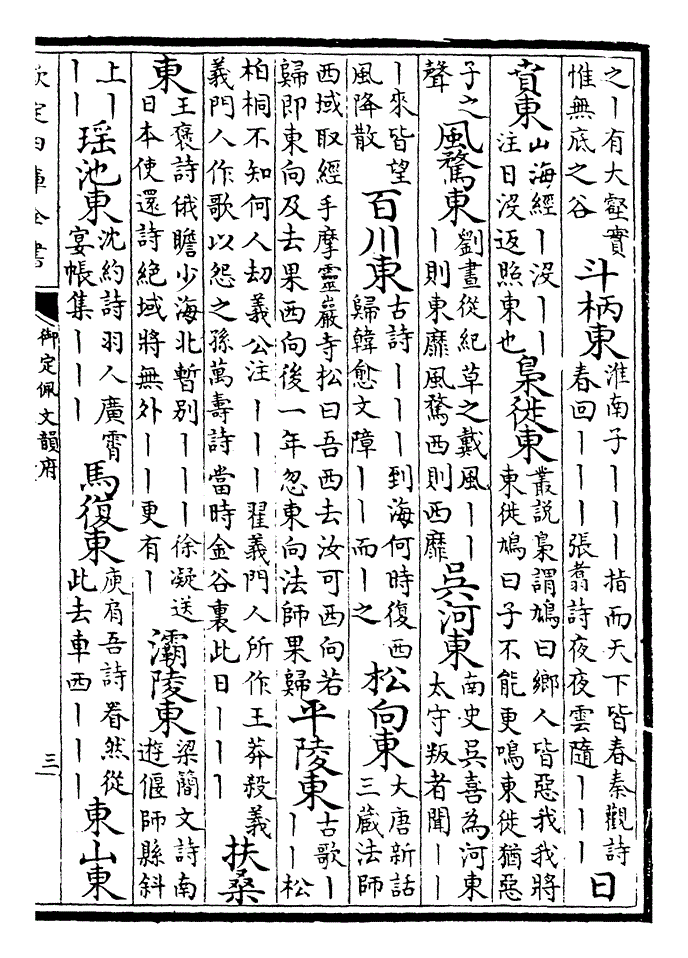 之｜有大壑實
惟無底之谷
斗柄東
淮南子｜｜｜指而天下皆春秦觀詩
春回｜｜｜張翥詩夜夜雲隨｜｜｜
日
賁東
山海經｜沒｜｜
注日沒返照東也
梟徙東
叢説梟謂鳩曰鄉人皆惡我我將
東徙鳩曰子不能更鳴東徙猶惡
子之
聲
風騖東
劉晝從紀草之戴風｜｜
｜則東靡風騖西則西靡
吳河東
南史吳喜為河東
太守叛者聞｜｜
｜來皆望
風降散
百川東
古詩｜｜｜到海何時復西
歸韓愈文障｜｜而｜之
松向東
大唐新話
三藏法師
西域取經手摩靈巖寺松曰吾西去汝可西向若
歸即東向及去果西向後一年忽東向法師果歸
平陵東
古歌｜
｜｜松
柏桐不知何人刼義公注｜｜｜翟義門人所作王莽殺義
義門人作歌以怨之孫萬壽詩當時金谷裏此日｜｜｜
扶桑
東
王褒詩俄瞻少海北暫别｜｜｜徐凝送
日本使還詩絶域將無外｜｜更有｜
灞陵東
梁簡文詩南
遊偃師縣斜
上｜
｜｜
瑶池東
沈約詩羽人廣霄
宴帳集｜｜｜
馬復東
庾肩吾詩眷然從
此去車西｜｜｜
東山東
欽定四庫全書
御定佩文韻府
三